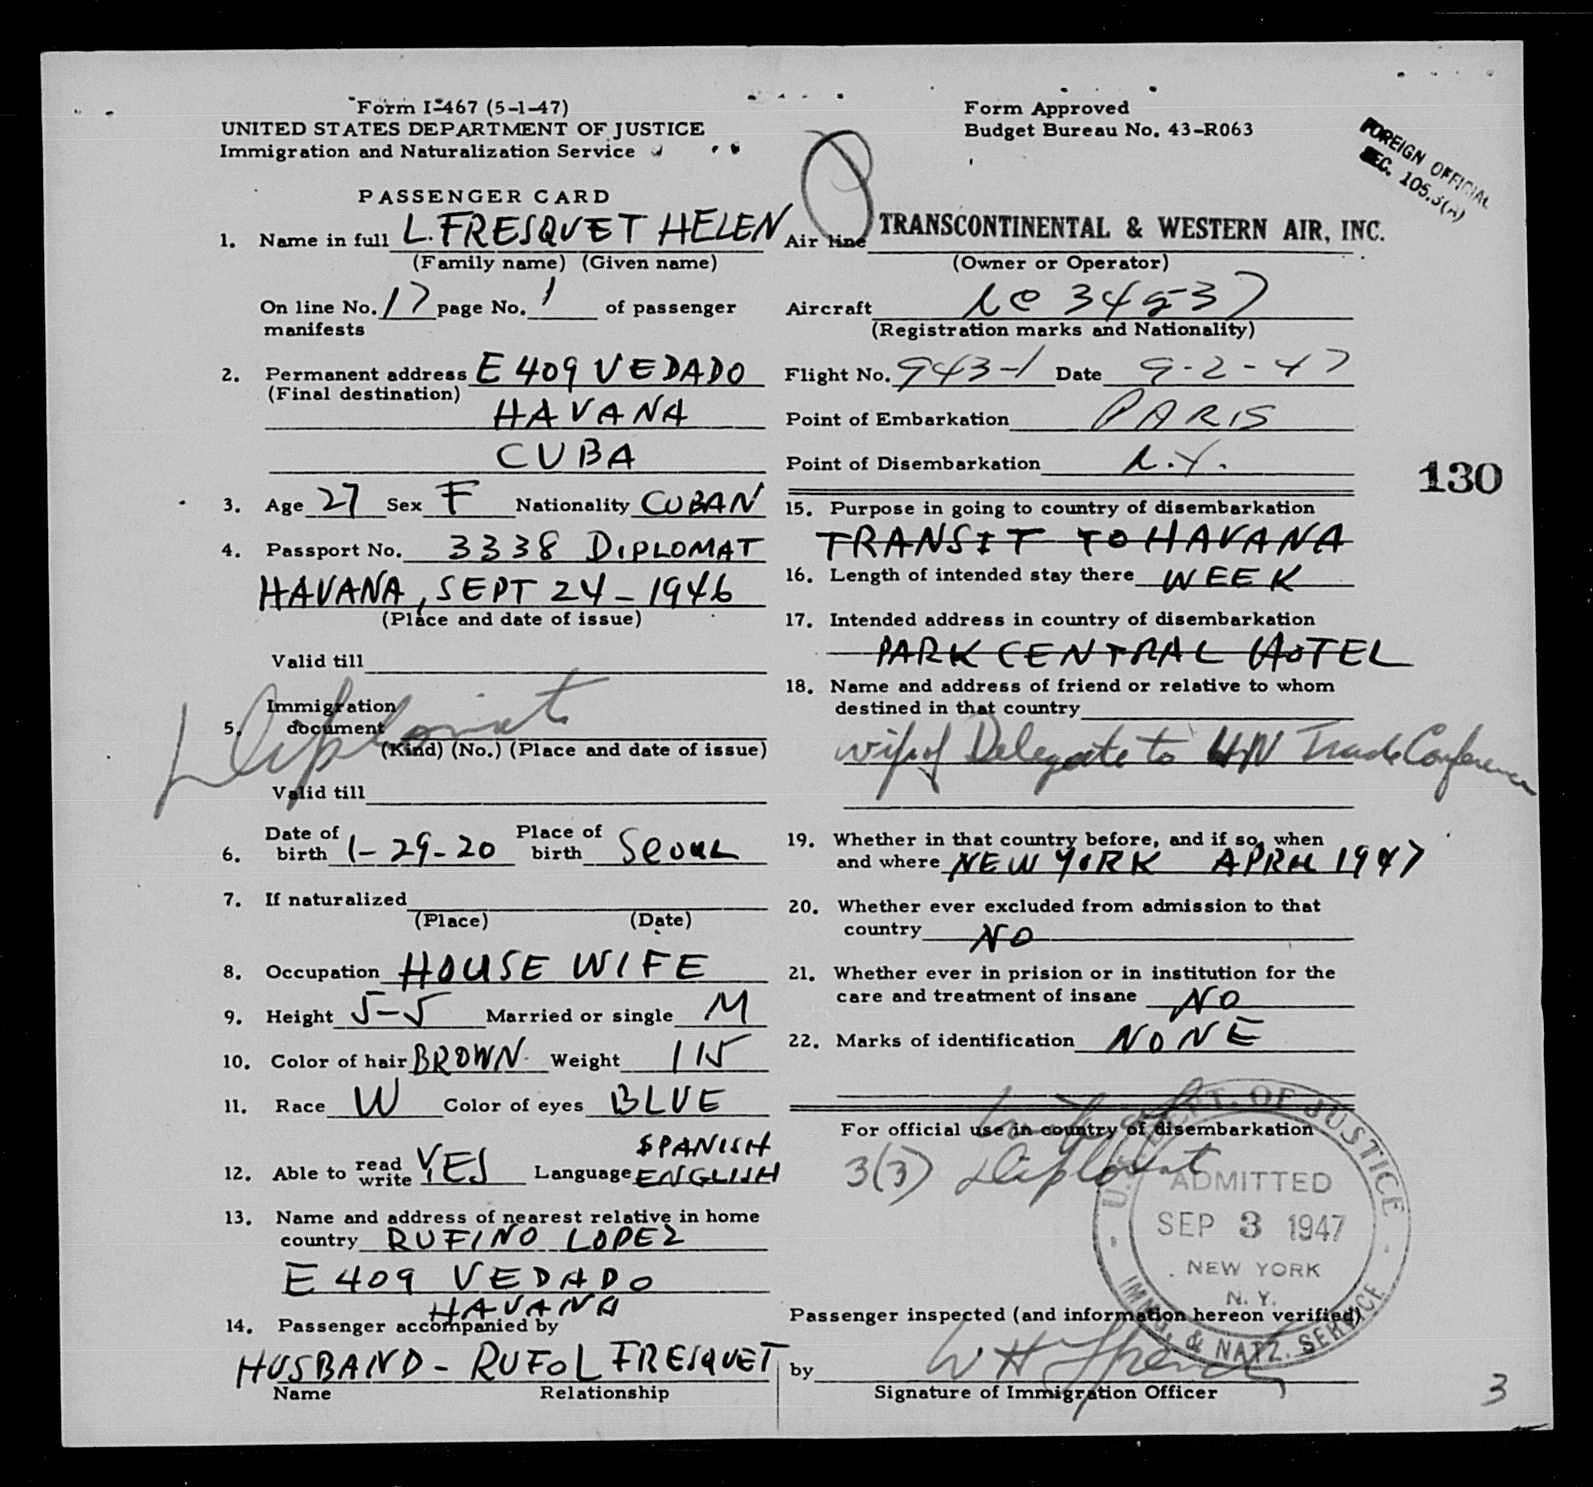 Form I-467 (5-1-47)
UNITED STATES DEPARTMENT OF JUSTICE
Immigration and Naturalization Service
Form Approved
Budget Bureau No. 43-R063
FOREIGN OFFICIAL
SEC. 105.3(A)
PASSENGER CARD
1. Name in full L. FRESQUET HELEN
(Family name) (Given name)
On line No. 17 page No. 1 of passenger
manifests
2. Permanent address E 409 VEDADO
(Final destination)
HAVANA
CUBA
3. Age 27 Sex F Nationality CUBAN
4. Passport No. 3338 DIPLOMAT
HAVANA, SEPT 24-1946
(Place and date of issue)
Valid till
Immigration
5. document Diplomat
(Kind) (No.) (Place and date of issue)
Valid till
Date of Place of
6. birth 1-29-20 birth Seoul
7. If naturalized
(Place) (Date)
8. Occupation HOUSE WIFE
9. Height 5-5 Married or single M
10. Color of hair BROWN Weight 115
11. Race W Color of eyes BLUE
SPANISH
12. Able to read write YES Language ENGLISH
13. Name and address of nearest relative in home
country RUFINO LOPEZ
E 409 VEDADO
HAVANA
14. Passenger accompanied by
HUSBAND - RUFO L FRESQUET
Name Relationship
Air line TRANSCONTINENTAL & WESTERN AIR, INC.
(Owner or Operator)
Aircraft
(Registration marks and Nationality)
Flight No. 943-1 Date 9-2-47
Point of Embarkation PARIS
Point of Disembarkation N.Y.
130
15. Purpose in going to country of disembarkation
TRANSIT TO HAVANA
16. Length of intended stay there WEEK
17. Intended address in country of disembarkation
PARK CENTRAL HOTEL
18. Name and address of friend or relative to whom
destined in that country
wife of Delegate to UN Trade Conference
19. Whether in that country before, and if so, when
and where NEW YORK APRIL 1947
20. Whether ever excluded from admission to that
country NO
21. Whether ever in prision or in institution for the
care and treatment of insane NO
22. Marks of identification NONE
For official use in country of disembarkation
3(3) Diplomat
U.S. DEPT. OF JUSTICE
ADMITTED
SEP 3 1947
NEW YORK
N. Y.
IMMG. & NATZ. SERVICE
Passenger inspected (and information hereon verified)
by
Signature of Immigration Officer
3